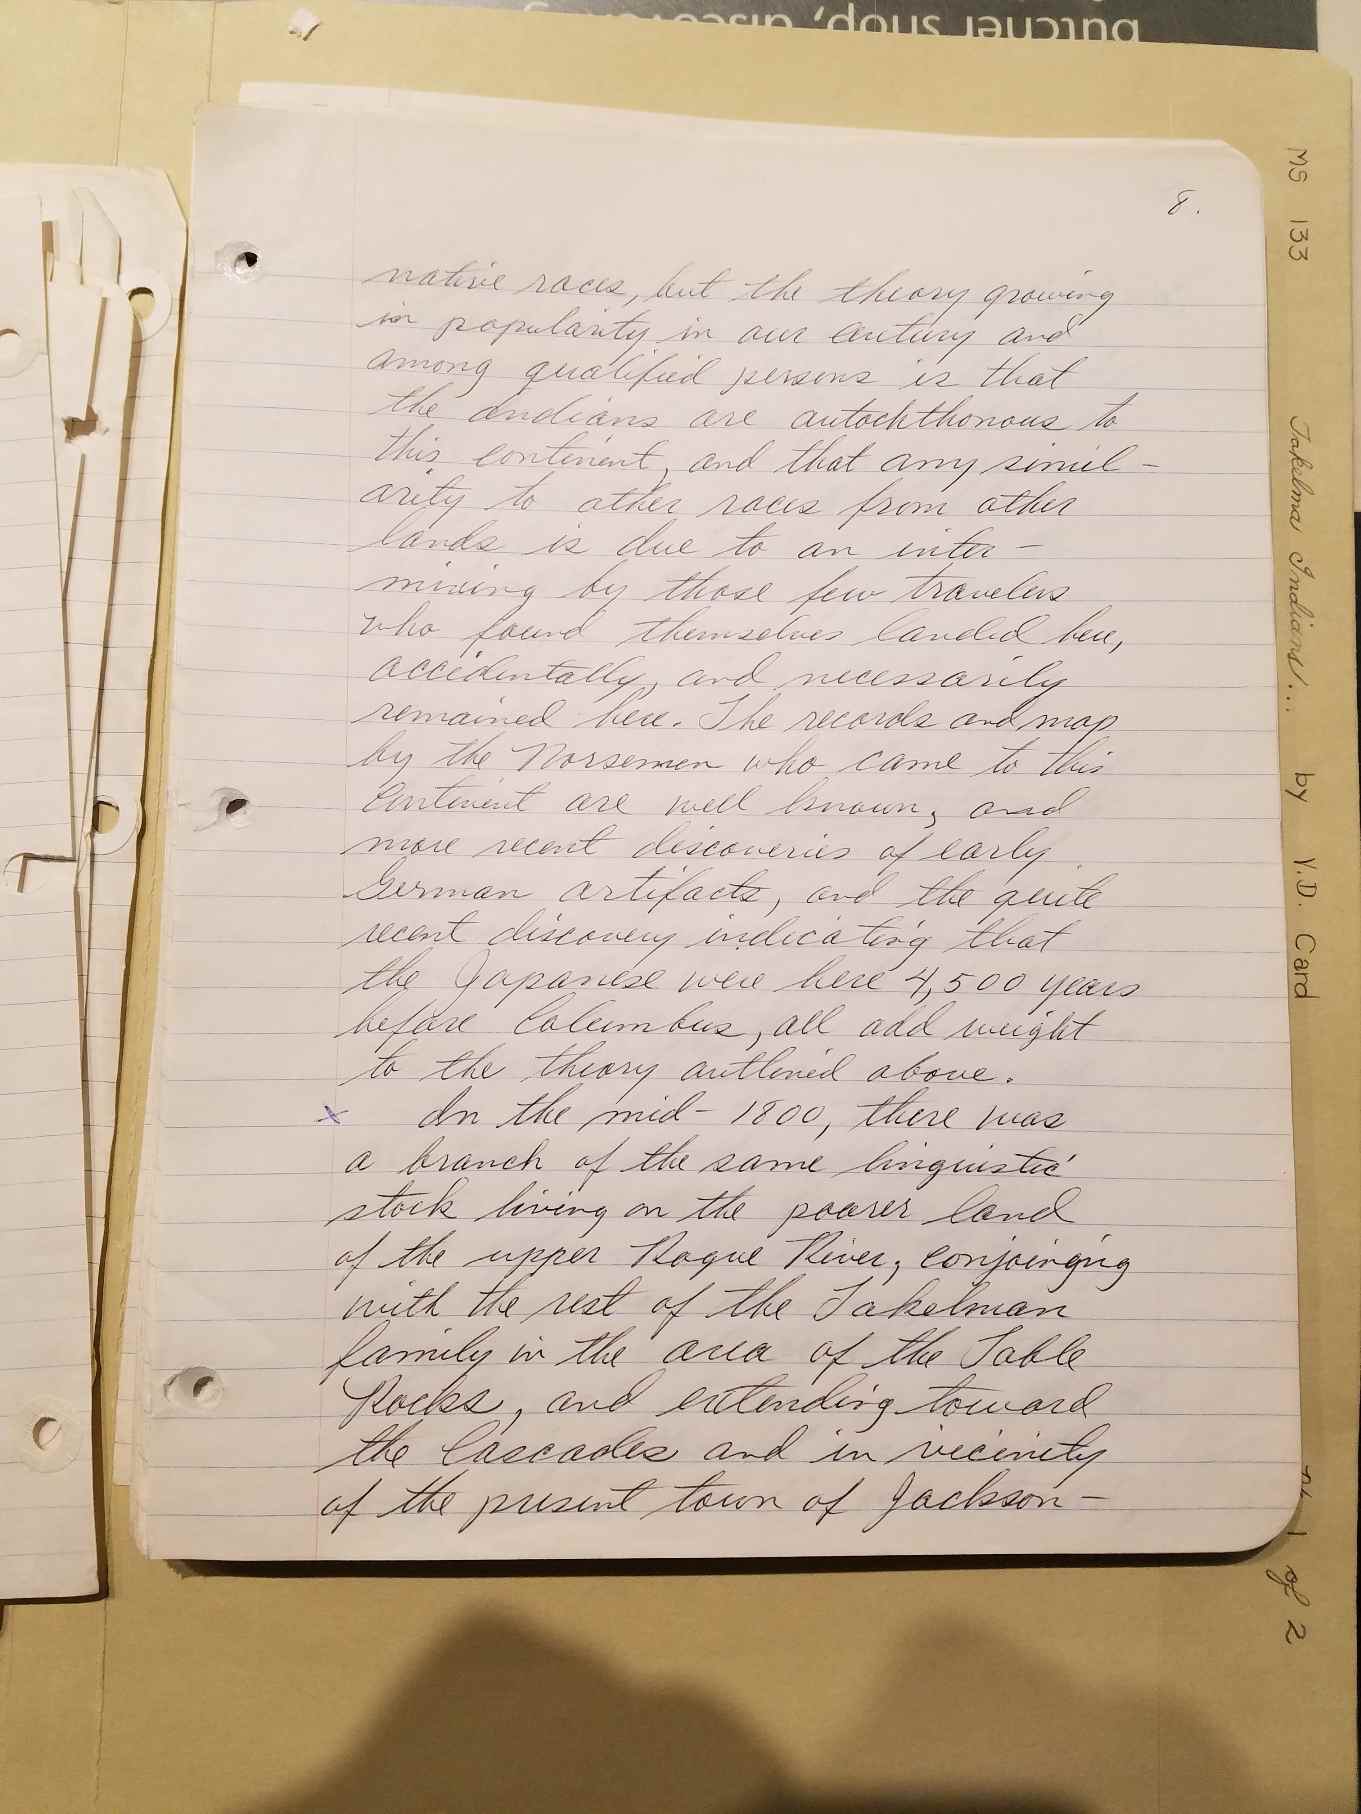 butcher shop, discover
8.
native races, but the theory growing
in popularity in our century and
among qualified persons is that
the Indians are autochthonous to
this continent, and that any simil-
arity to other races from other
lands is due to an inter-
mixing by those few travelers
who found themselves landed here,
accidentally, and necessarily
remained here. The records and map
by the Norsemen who came to this
Continent are well known, and
more recent discoveries of early
German artifacts, and the quite
recent discovery indicating that
the Japanese were here 4,500 years
before Columbus, all add weight
to the theory outlined above.
x In the mid-1800, there was
a branch of the same linguistic
stock living on the poorer land
of the upper Rogue River, conjoinging
with the rest of the Takelman
family in the area of the Table
Rocks, and extending toward
the Cascades and in vicinity
of the present town of Jackson-
MS 133 Takelma Indians... by V.D. Card 1 of 2